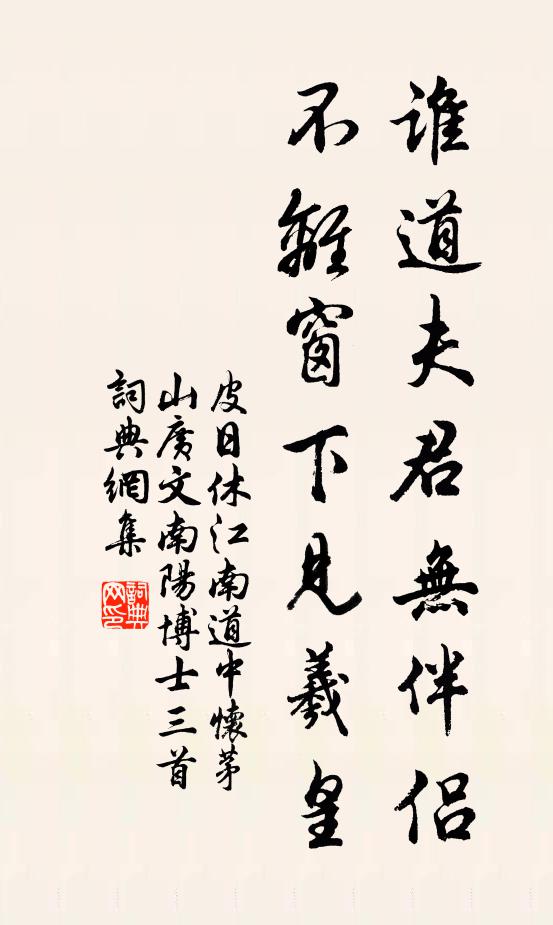 誰道夫君無伴侶
不離窗下見羲皇
皮日休江南道中懷茅
山廣文南陽博士三首
詞典網集
詞典
网印